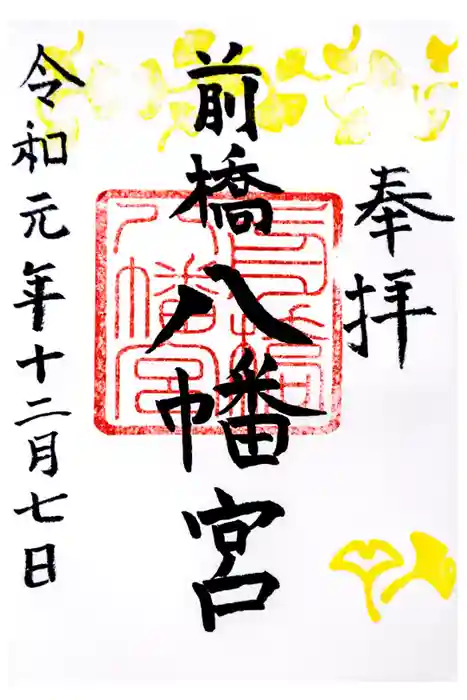 奉拝
前橋八幡宮
令和元年十二月七日